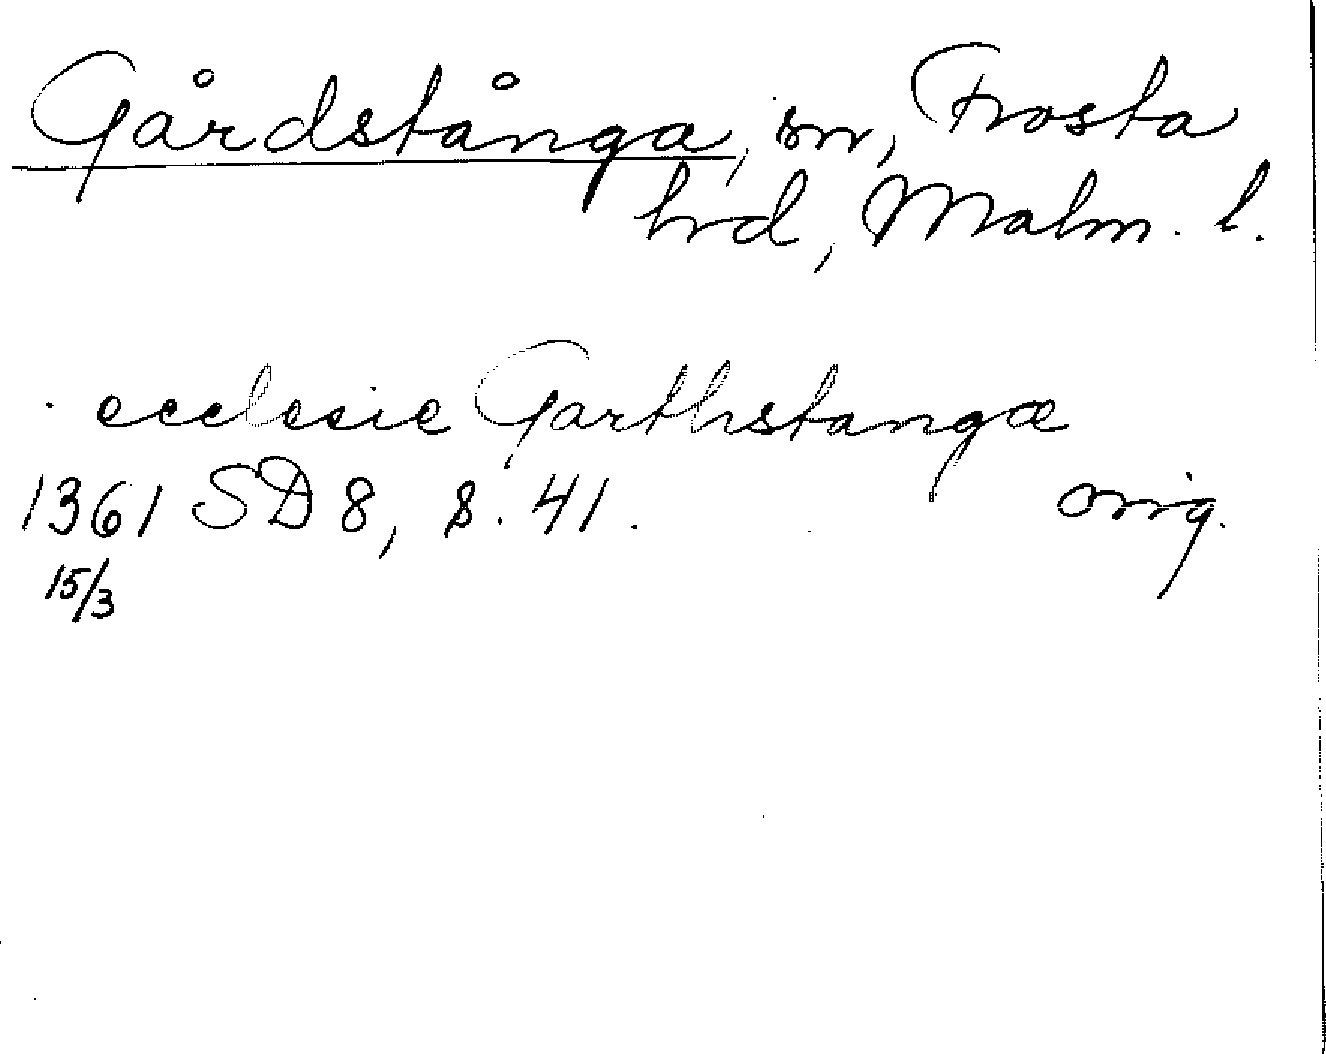 Gårdstånga, sn, Frosta
hrd, Malm. l.
ecclesie Garthstangæ
1361 SD 8, s. 41. orig.
15/3